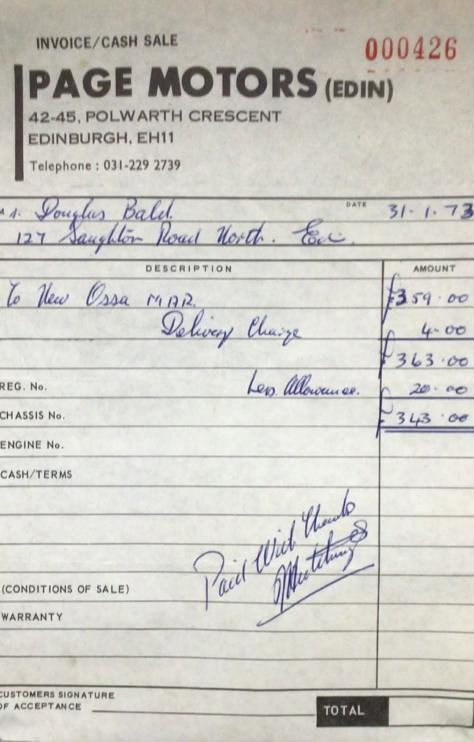 INVOICE/CASH SALE
000426
PAGE MOTORS (EDIN)
42-45, POLWARTH CRESCENT
EDINBURGH, EH11
Telephone : 031-229 2739
Douglas Bald. DATE 31-1-73
127 Saughton Road North.
DESCRIPTION AMOUNT
To New Ossa M.A.R. £359.00
Delivery Charge 4-00
£363.00
REG. No. Less Allowance. 20-00
CHASSIS No. £343.00
ENGINE No.
CASH/TERMS
Paid With Thanks
(CONDITIONS OF SALE)
WARRANTY
CUSTOMERS SIGNATURE
OF ACCEPTANCE
TOTAL